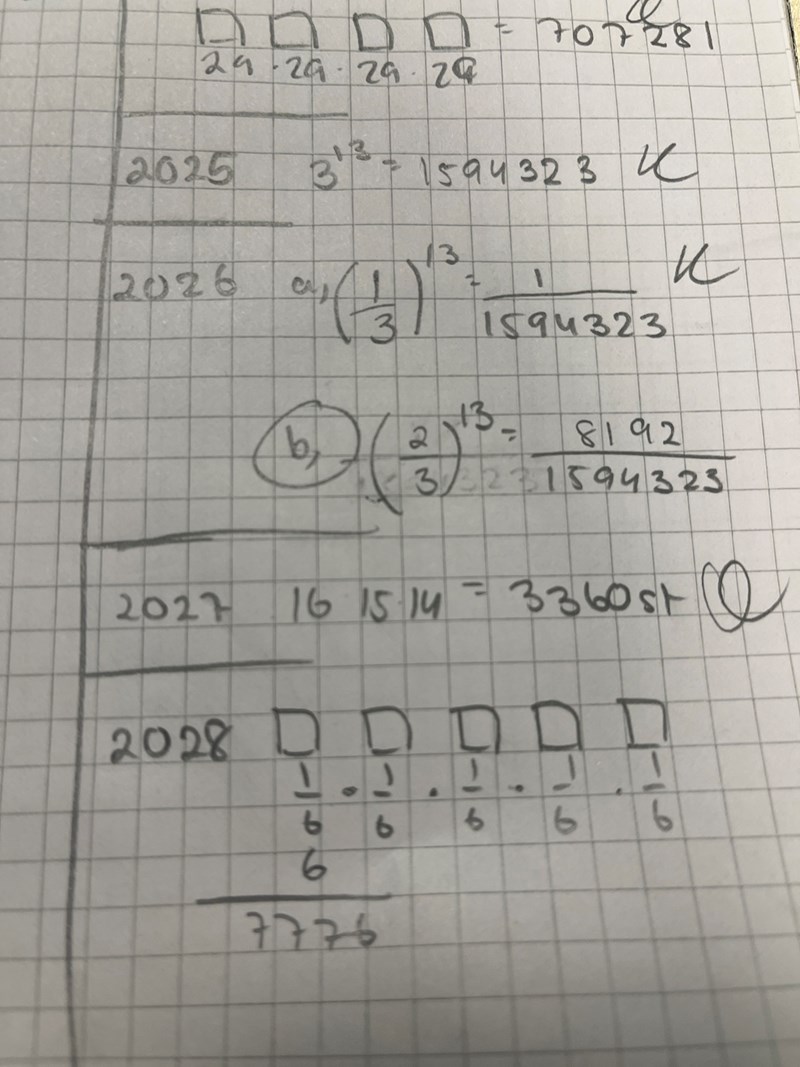 □ □ □ □ = 707281
29 · 29 · 29 · 29
2025 3^13 = 1594323 K
2026 a, (1/3)^13 = 1/1594323 K
b, (2/3)^13 = 8192/1594323
2027 16 15 14 = 3360 st
2028 □ □ □ □ □
1/6 · 1/6 · 1/6 · 1/6 · 1/6
6
7776